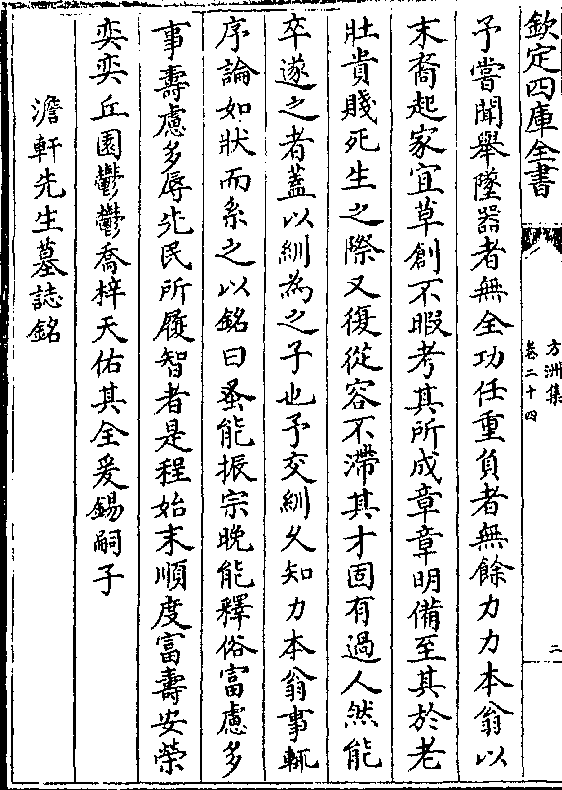 欽定四庫全書
方洲集
卷二十四
二
予嘗聞舉墜器者無全功任重負者無餘力力本翁以
末裔起家宜草創不暇考其所成章章明備至其於老
壯貴賤死生之際又復從容不滯其才固有過人然能
卒遂之者蓋以紃為之子也予交紃久知力本翁事輒
序論如狀而系之以銘曰蚤能振宗晚能釋俗富慮多
事壽慮多辱先民所履智者是程始末順度富壽安榮
奕奕丘園鬱鬱喬梓天佑其全爰錫嗣子
澹軒先生墓誌銘